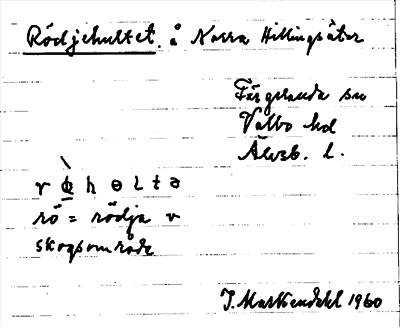 Rödjehultet å Norra Hillingsäter
Färgelanda sn
Valbo hd
Älvsb. l.
rö = rödja v
skogsområde
1960